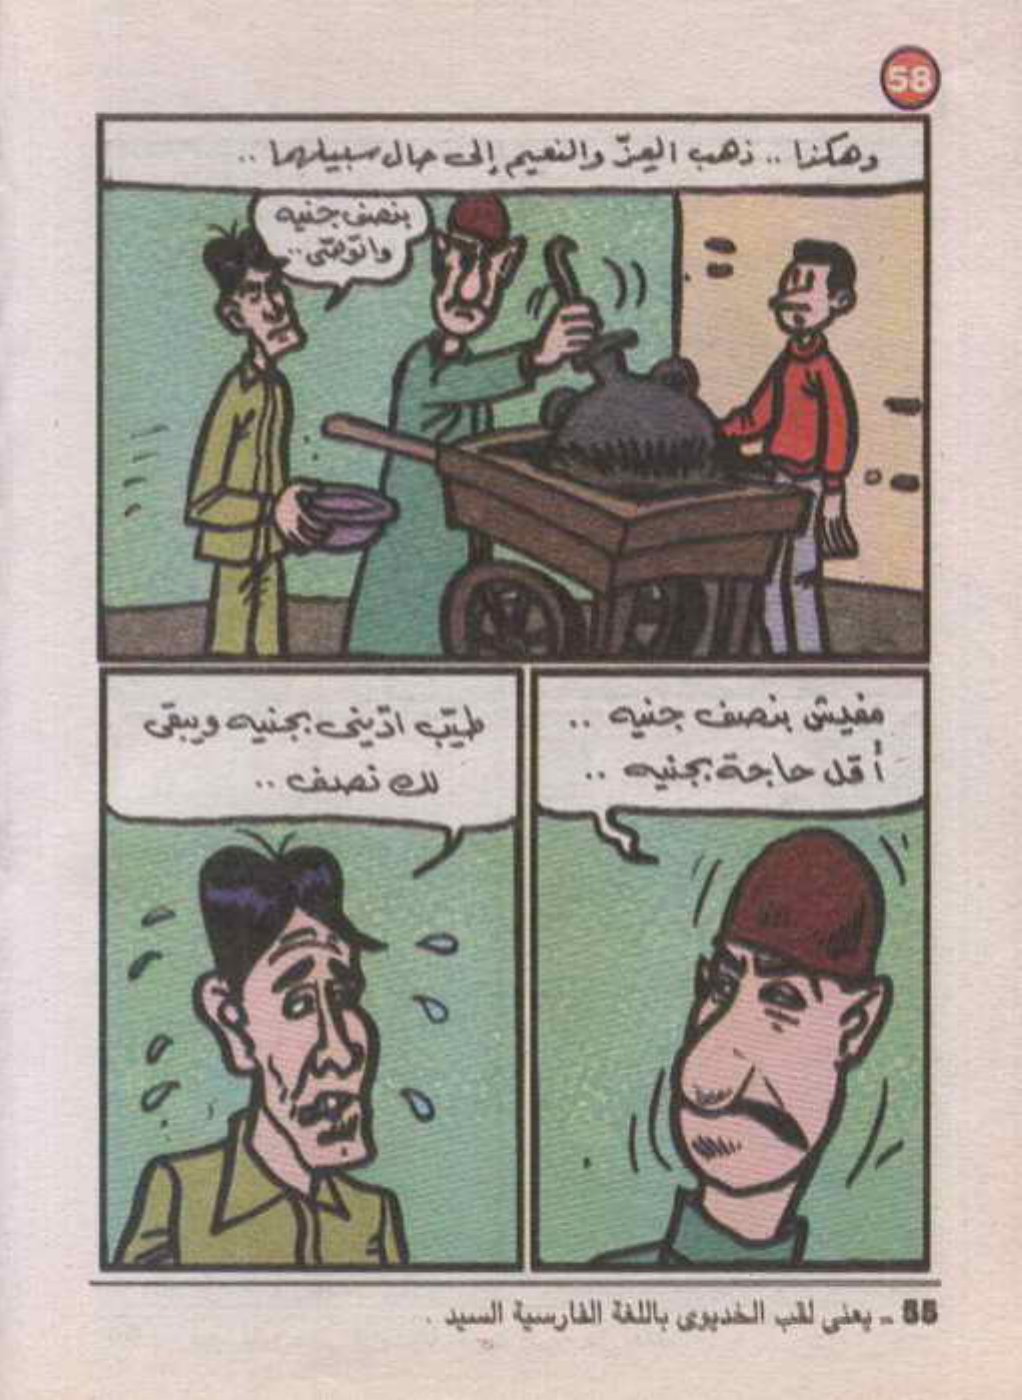 58
وهكذا .. ذهب العزّ والنعيم إلى حال سبيلهما ..
بنصف جنيه
واتوصّى ..
مفيش بنصف جنيه ..
أقل حاجة بجنيه ..
طيّب ادّينى بجنيه ويبقى
لك نصف ..
55 - يعنى لقب الخديوى باللغة الفارسية السيد .